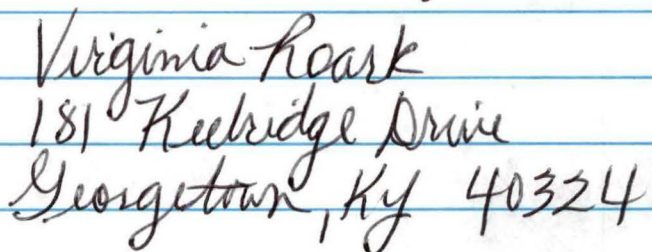 Virginia Roark
181 Keelridge Drive
Georgetown, Ky 40324